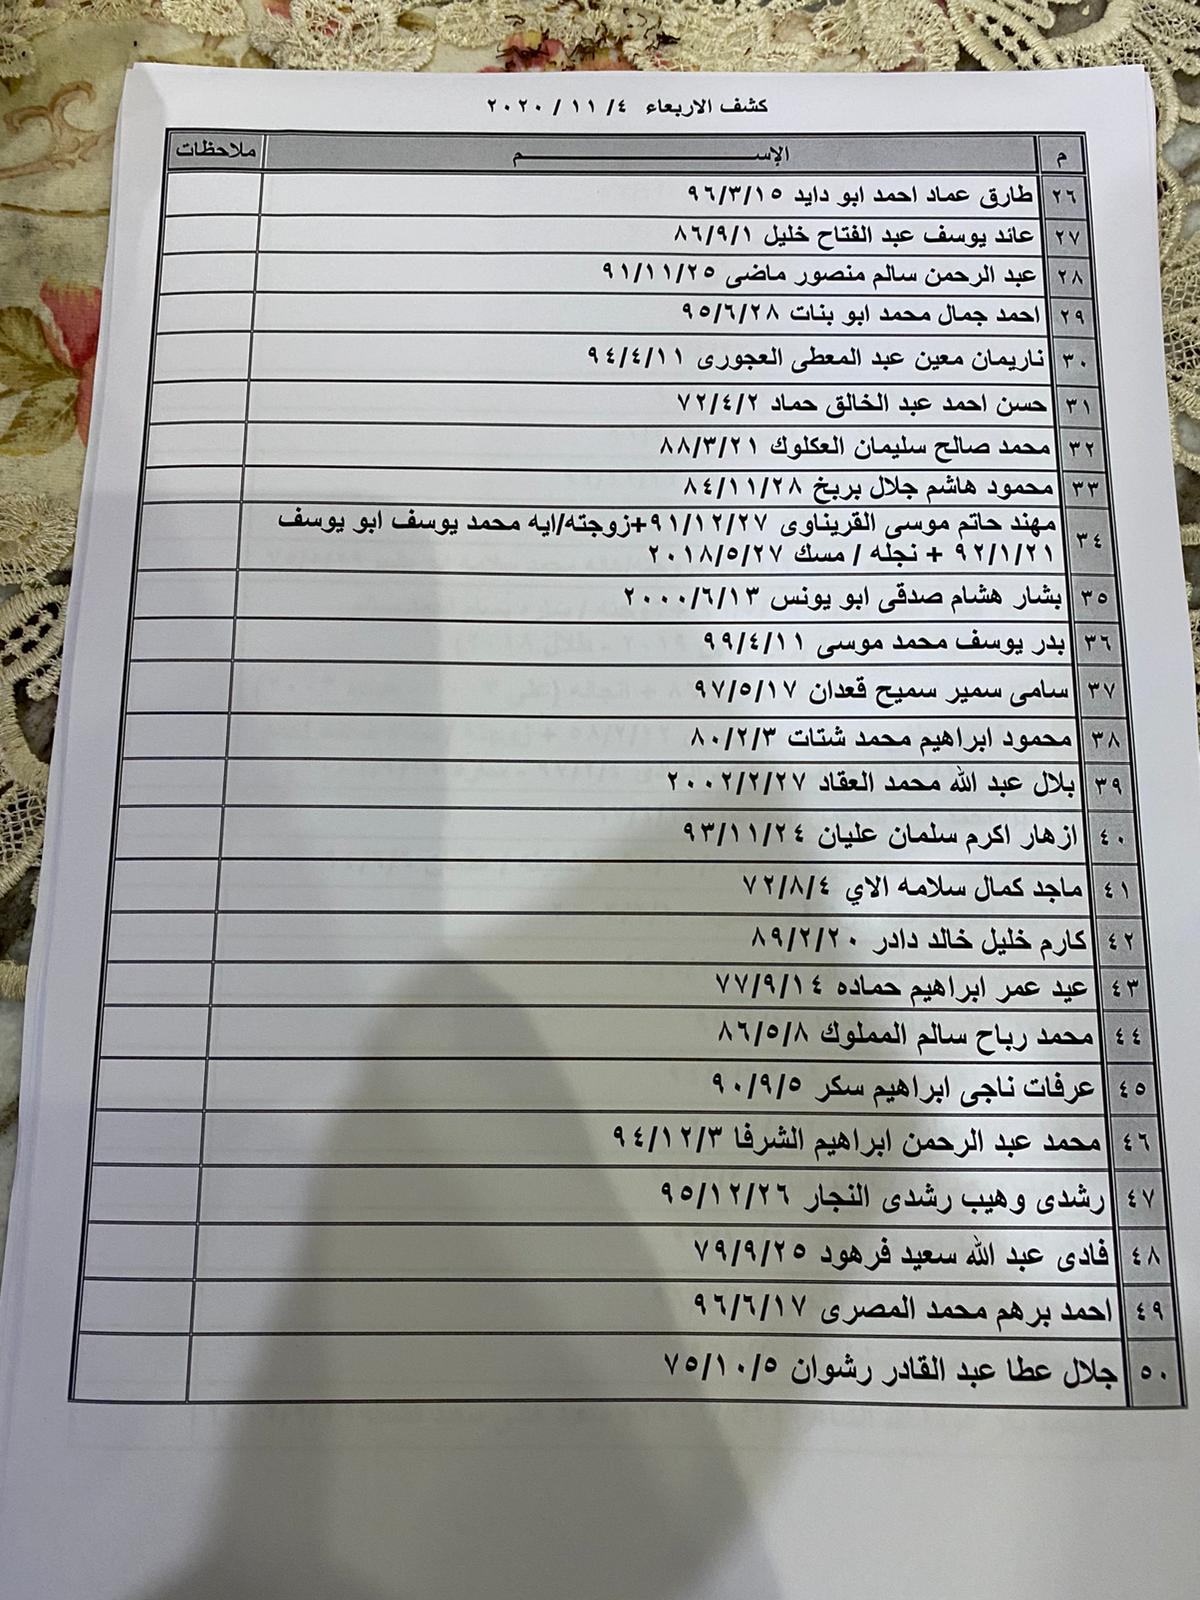 كشف الاربعاء ٤/ ١١ / ٢٠٢٠
م الإســـــــــــــم ملاحظات
٢٦ طارق عماد احمد ابو دايد ٩٦/٣/١٥
٢٧ عائد يوسف عبد الفتاح خليل ٨٦/٩/١
٢٨ عبد الرحمن سالم منصور ماضى ٩١/١١/٢٥
٢٩ احمد جمال محمد ابو بنات ٩٥/٦/٢٨
٣٠ ناريمان معين عبد المعطى العجورى ٩٤/٤/١١
٣١ حسن احمد عبد الخالق حماد ٧٢/٤/٢
٣٢ محمد صالح سليمان العكلوك ٨٨/٣/٢١
٣٣ محمود هاشم جلال بربخ ٨٤/١١/٢٨
٣٤ مهند حاتم موسى القريناوى ٩١/١٢/٢٧+زوجته/ايه محمد يوسف ابو يوسف
٩٢/١/٢١ + نجله / مسك ٢٠١٨/٥/٢٧
٣٥ بشار هشام صدقى ابو يونس ٢٠٠٠/٦/١٣
٣٦ بدر يوسف محمد موسى ٩٩/٤/١١
٣٧ سامى سمير سميح قعدان ٩٧/٥/١٧
٣٨ محمود ابراهيم محمد شتات ٨٠/٢/٣
٣٩ بلال عبد الله محمد العقاد ٢٠٠٢/٢/٢٧
٤٠ ازهار اكرم سلمان عليان ٩٣/١١/٢٤
٤١ ماجد كمال سلامه الاي ٧٢/٨/٤
٤٢ كارم خليل خالد دادر ٨٩/٢/٢٠
٤٣ عيد عمر ابراهيم حماده ٧٧/٩/١٤
٤٤ محمد رباح سالم المملوك ٨٦/٥/٨
٤٥ عرفات ناجى ابراهيم سكر ٩٠/٩/٥
٤٦ محمد عبد الرحمن ابراهيم الشرفا ٩٤/١٢/٣
٤٧ رشدى وهيب رشدى النجار ٩٥/١٢/٢٦
٤٨ فادى عبد الله سعيد فرهود ٧٩/٩/٢٥
٤٩ احمد برهم محمد المصرى ٩٦/٦/١٧
٥٠ جلال عطا عبد القادر رشوان ٧٥/١٠/٥